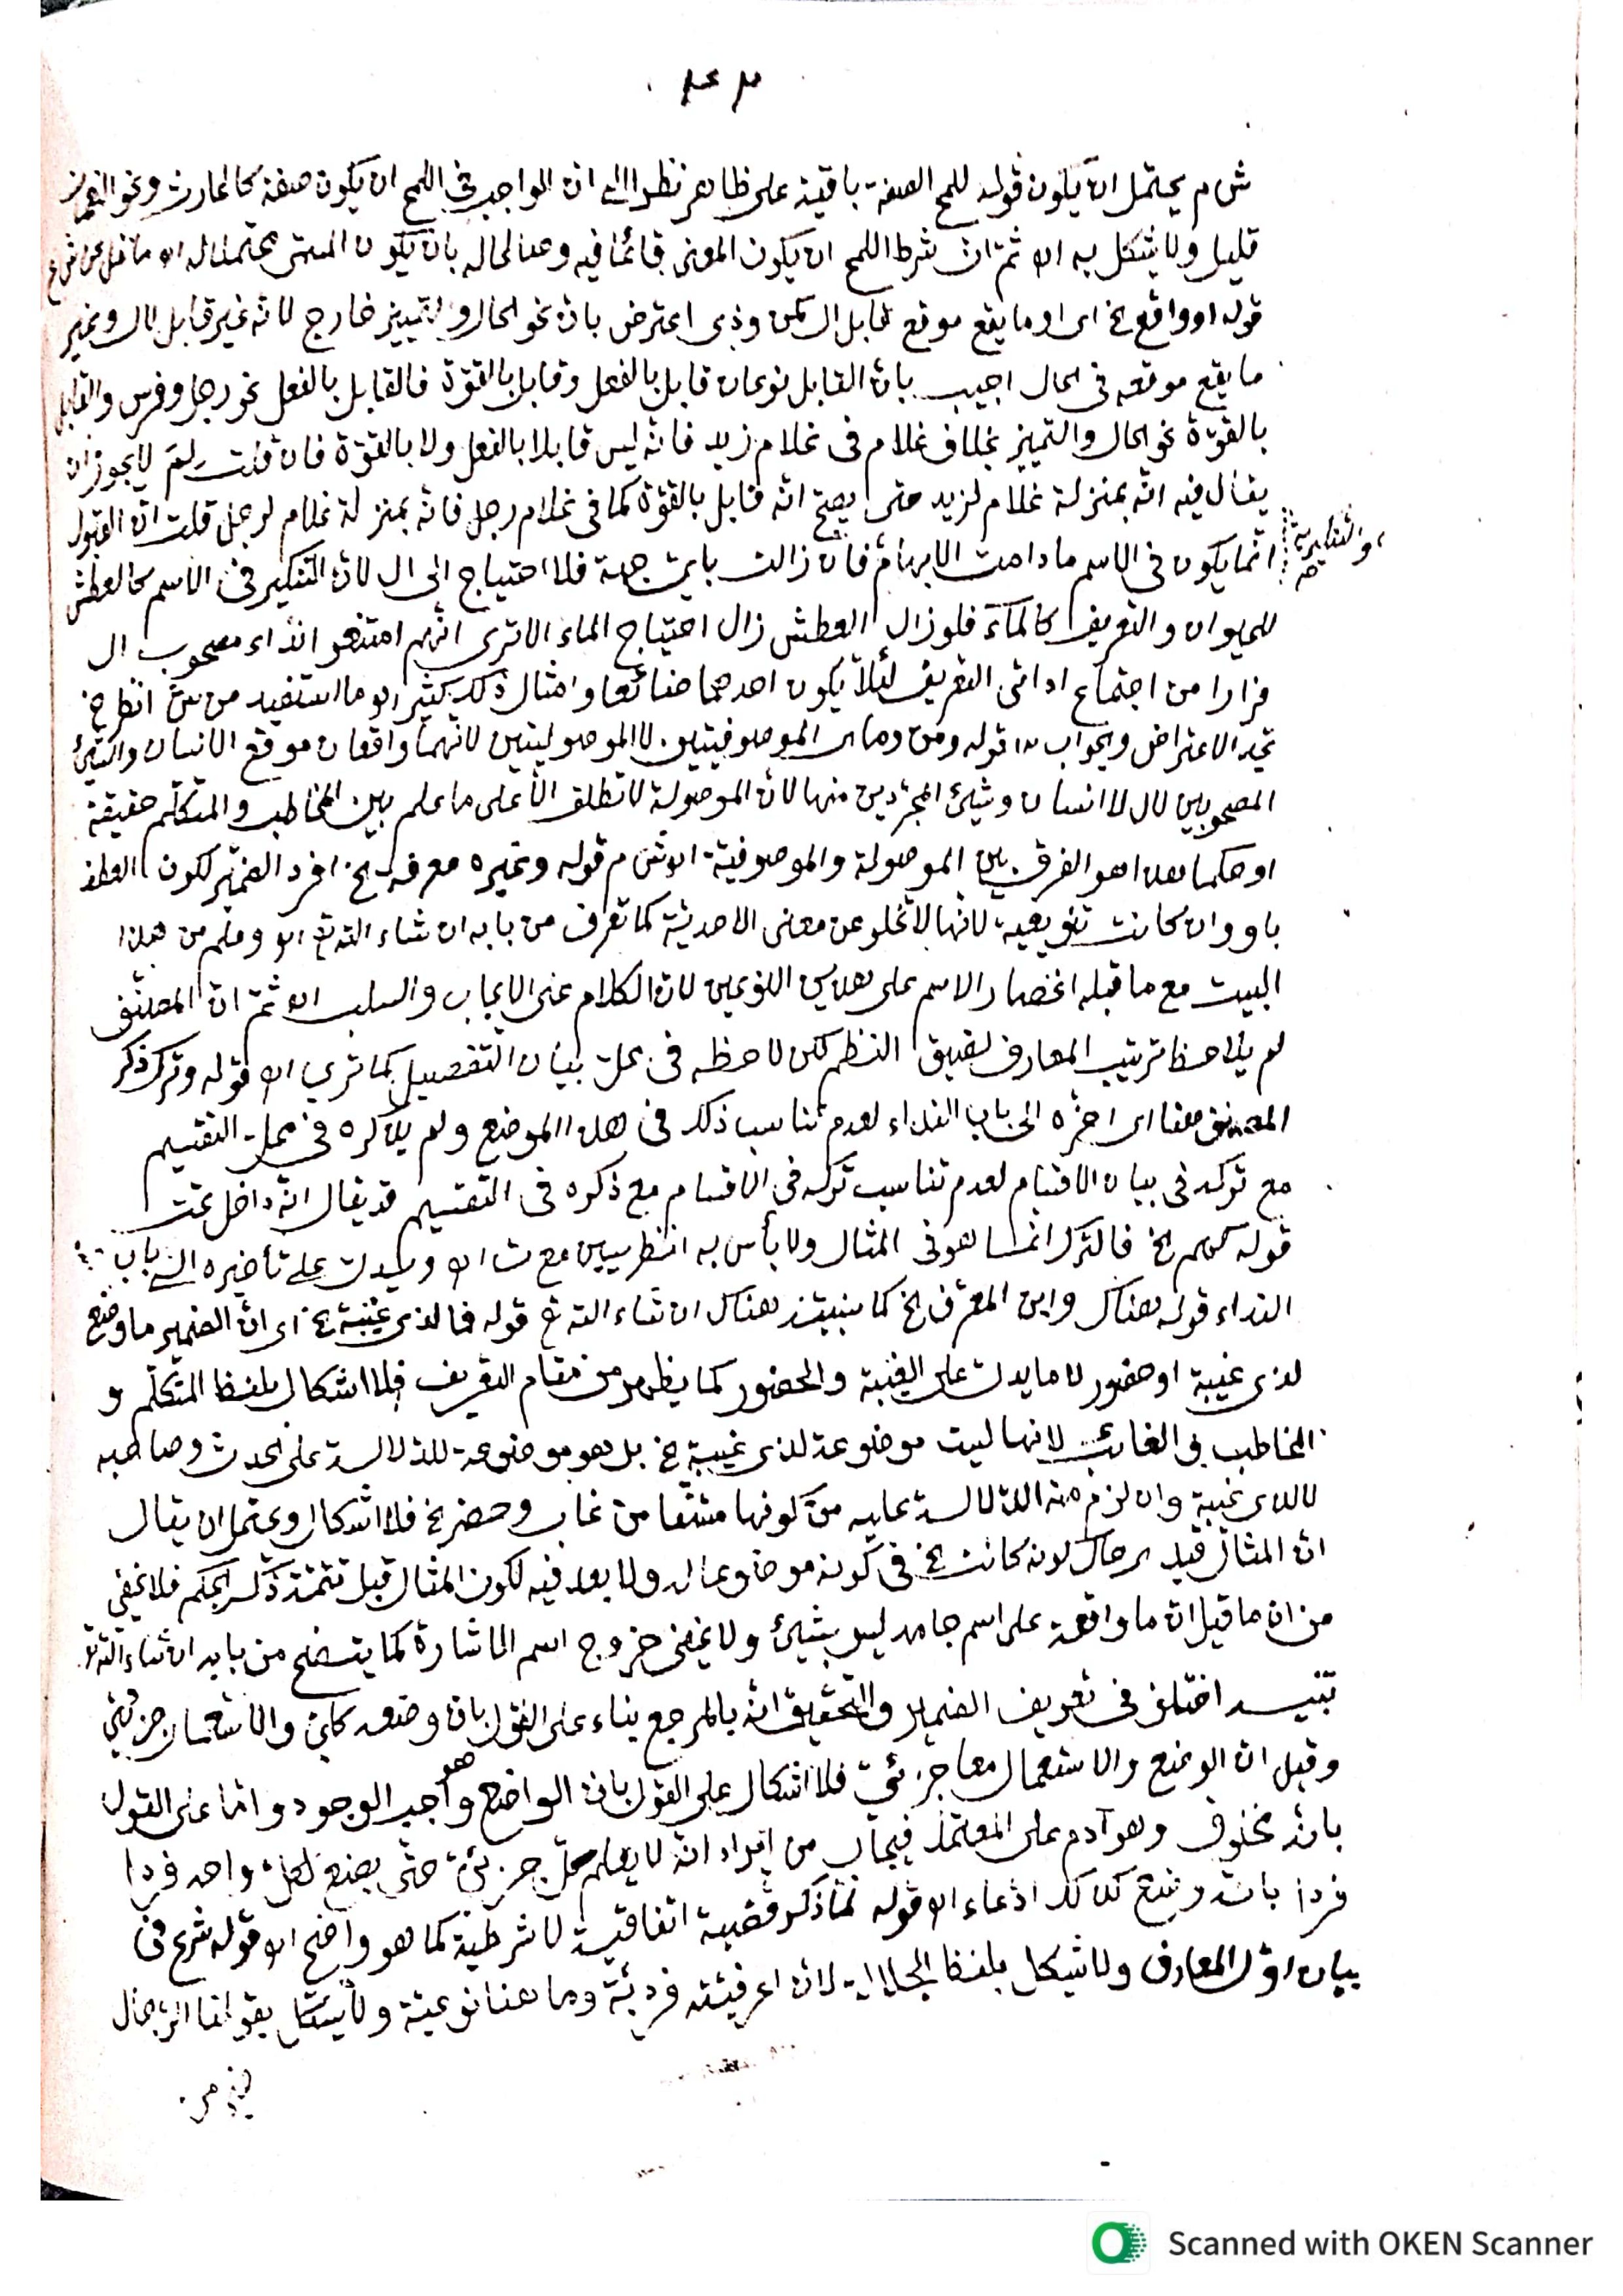 ش م يحتمل ان يكون قوله للمح الصفة باقية على ظاهره نظرا الى ان الواجب في اللمح ان يكون صفة كالحارث ونحو النعمان
قليل ولا يشكل به اه ثم ان شرط اللمح ان يكون المعنى قائما فيه وهنا لحاله بان يكون المسمى محتملا له اه
قوله او واقع الخ اى او ما يقع موقع قابل ال كمن وذى اعترض بان نحو الحال والتمييز خارج لانه غير قابل لال وغير
ما يقع موقعه فى الحال اجيب بان القابل نوعان قابل بالفعل وقابل بالقوّة فالقابل بالفعل نحو رجل وفرس والقابل
بالقوّة نحو الحال والتمييز بخلاف غلام فى غلام زيد فانّه ليس قابلا بالفعل ولا بالقوّة فان قلت لِمَ لا يجوز ان
يقال فيه انّه بمنزلة غلام لزيد حتى يصحّ انّه قابل بالقوّة كما فى غلام رجل فانّه بمنزلة غلام لرجل قلت انّ القبول
انّما يكون فى الاسم ما دامت الابهام فان زالت بايّ جهة فلا احتياج الى ال لانّ التنكير فى الاسم كالعطش
والتنكيرية صح
للحيوان والتعريف كالمآء فلو زال العطش زال احتياج الماء الا ترى انّهم امتنعوا نداء مصحوب ال
فرارا من اجتماع اداتى التعريف لئلّا يكون احدهما ضائعا وامثال ذلك كثير اه وما استفيد من ش انظر الخ
تجد الاعتراض والجواب اه قوله ومن وما اى الموصوفيتين لا الموصوليتين لانهما واقعان موقع الانسان والشئ
المصحوبين لال لا انسان وشئ المجرّدين منها لانّ الموصولة لا تطلق الّا على ما علم بين المخاطب والمتكلّم حقيقة
او حكما هذا هو الفرق بين الموصولة والموصوفية اه ش م قوله وغيره معرفة الخ افرد الضمير لكون العطف
باو وان كانت تنويعية لانها لا تخلو عن معنى الاحدية كما تعرف من بابه ان شاء الله تع اه وعلم من هذا
البيت مع ما قبله انحصار الاسم على هذين النوعين لانّ الكلام على الايجاب والسلب اه ثمّ ان المصنّف
لم يلاحظ ترتيب المعارف لضيق النظم لكن لاحظه فى محلّ بيان التفصيل كما ترى اه قوله وترك ذكر
المصنف هنا اى اخّره الى باب النداء لعدم تناسب ذلك فى هذا الموضع ولم يذكره فى محلّ التقسيم
مع تركه فى بيان الاقسام لعدم تناسب تركه فى الاقسام مع ذكره فى التقسيم قد يقال انّه داخل تحت
قوله كهم الخ فالترك انّما هو فى المثال ولا بأس به انظر سيبن مع ت اه ويدلّ على تأخيره الى باب
النداء قوله هناك وابن المعرّف الخ كما ينبّه هناك ان شاء الله تع قوله فما لذى غيبة الخ اى انّ الضمير ما وضع
لذى غيبة او حضور لا ما يدلّ على الغيبة والحضور كما يظهر من مقام التعريف فلا اشكال بلفظ المتكلّم و
المخاطب فى الغائب لانها ليست موضوعة لذى غيبة الخ بل هو موضوعة للدلالة على الحدث وصاحبه
لا لذى غيبة وان لزم منه الدلالة عليه من كونها مشتقا من غاب وحضر الخ فلا اشكال ويحتمل ان يقال
انّ المثال قيد اى حال كونه كانت الخ فى كونه موضوعا له ولا بعد فيه لكون المثال قبل تتمّة ذكر الحكم فلا يخفى
من ان ما قيل انّ ما واقعة على اسم جامد ليس بشئ ولا يخفى خروج اسم الاشارة كما يتضح من بابه ان شاء الله تع
تنبيه اختلف فى تعريف الضمير والتحقيق انّه بالمرجع بناء على القول بان وضعه كلّى والاستعمال جزئى
وقيل انّ الوضع والاستعمال معا جزئىّ فلا اشكال على القول بانّ الواضع هو واجب الوجود وامّا على القول
بانّه مخلوق وهو آدم على المعتمد فيجاب من ايراد انّه لا يعلم كلّ جزئىّ حتّى يضع لكلّ واحد فردا
فردا بانّه وضع كذلك ادّعاء اه قوله لمّا ذكر قضية اتفاقيّة لا شرطيّة كما هو واضح اه قوله شرع فى
بيان اوّل المعارف ولا يشكل بلفظ الجلالة لانّ اعرفيّته فرديّة وما هنا نوعيّة ولا يشكل بقولنا الرّجال
خير من
Scanned with OKEN Scanner